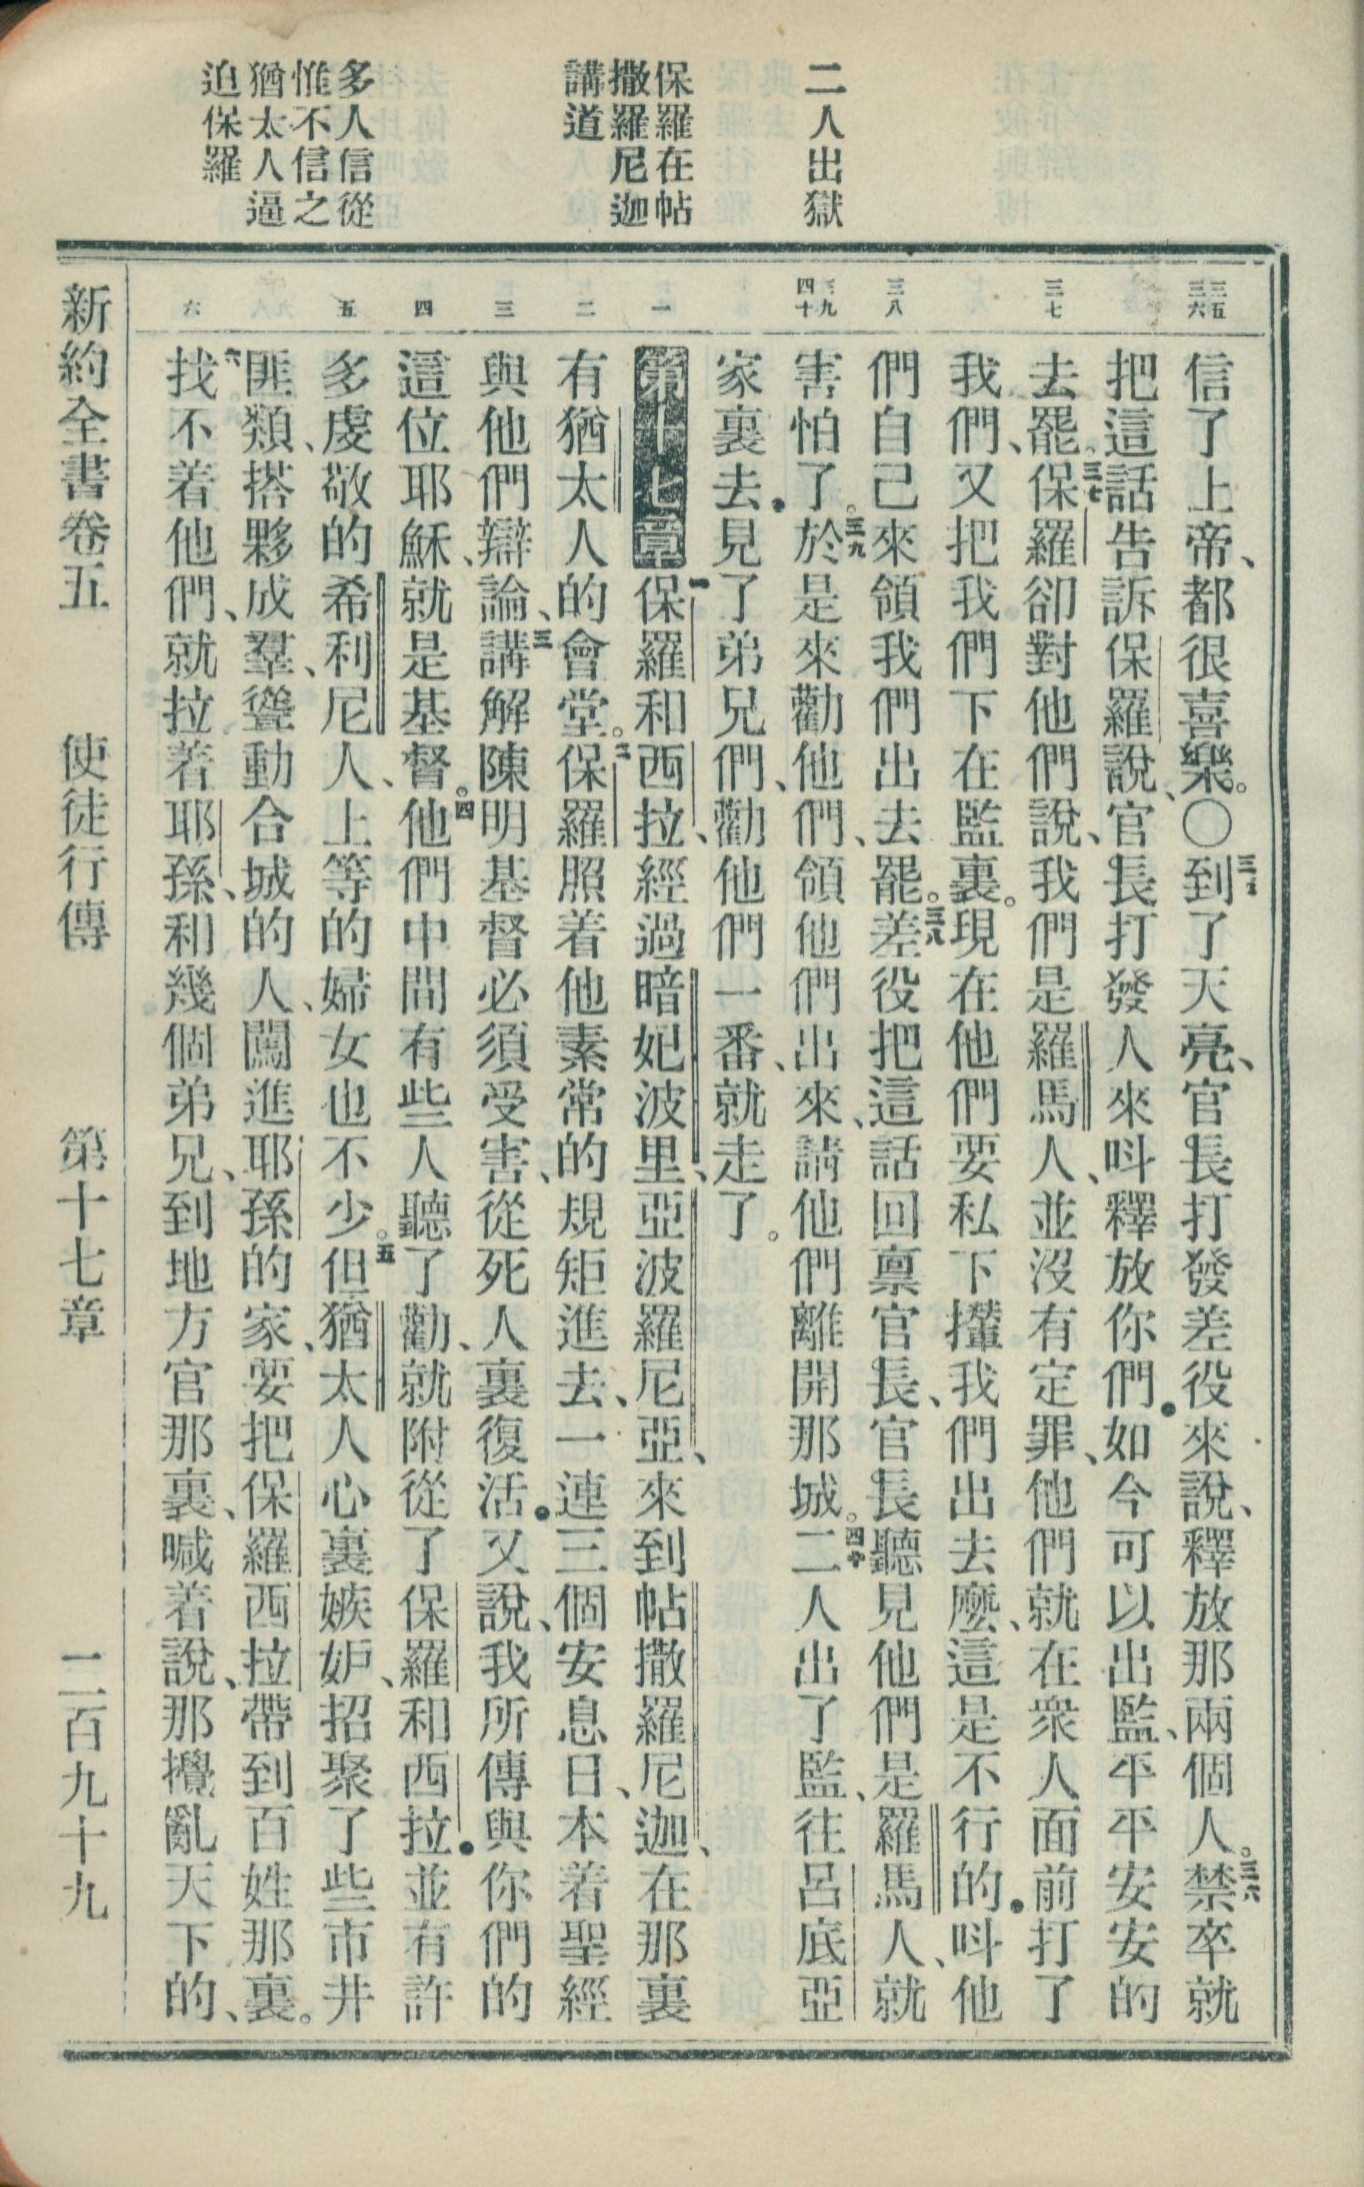 二人出獄
保羅在帖
撒羅尼迦
講道
多人信從
惟不信之
猶太人逼
迫保羅
三五
三六
三七
三八
三九
四十
一
二
三
四
五
六
信了上帝、都很喜樂。〇三五到了天亮、官長打發差役來說、釋放那兩個人。三六禁卒就
把這話告訴保羅說、官長打發人來呌釋放你們．如今可以出監、平平安安的
去罷。三七保羅卻對他們說、我們是羅馬人、並沒有定罪、他們就在衆人面前打了
我們、又把我們下在監裏。現在他們要私下攆我們出去麼、這是不行的．呌他
們自己來領我們出去罷。三八差役把這話回禀官長、官長聽見他們是羅馬人、就
害怕了。三九於是來勸他們、領他們出來、請他們離開那城。四十二人出了監、往呂底亞
家裏去．見了弟兄們、勸他們一番、就走了。
第十七章一保羅和西拉、經過暗妃波里、亞波羅尼亞、來到帖撒羅尼迦、在那裏
有猶太人的會堂。二保羅照着他素常的規矩進去、一連三個安息日、本着聖經
與他們辯論、三講解陳明基督必須受害、從死人裏復活．又說、我所傳與你們的
這位耶穌、就是基督。四他們中間有些人聽了勸、就附從了保羅和西拉．並有許
多虔敬的希利尼人、上等的婦女也不少。五但猶太人心裏嫉妒、招聚了些市井
匪類、搭夥成羣、聳動合城的人、闖進耶孫的家、要把保羅西拉帶到百姓那裏。
六找不着他們、就拉着耶孫、和幾個弟兄、到地方官那裏、喊着說、那攪亂天下的、
新約全書卷五　使徒行傳　第十七章　二百九十九